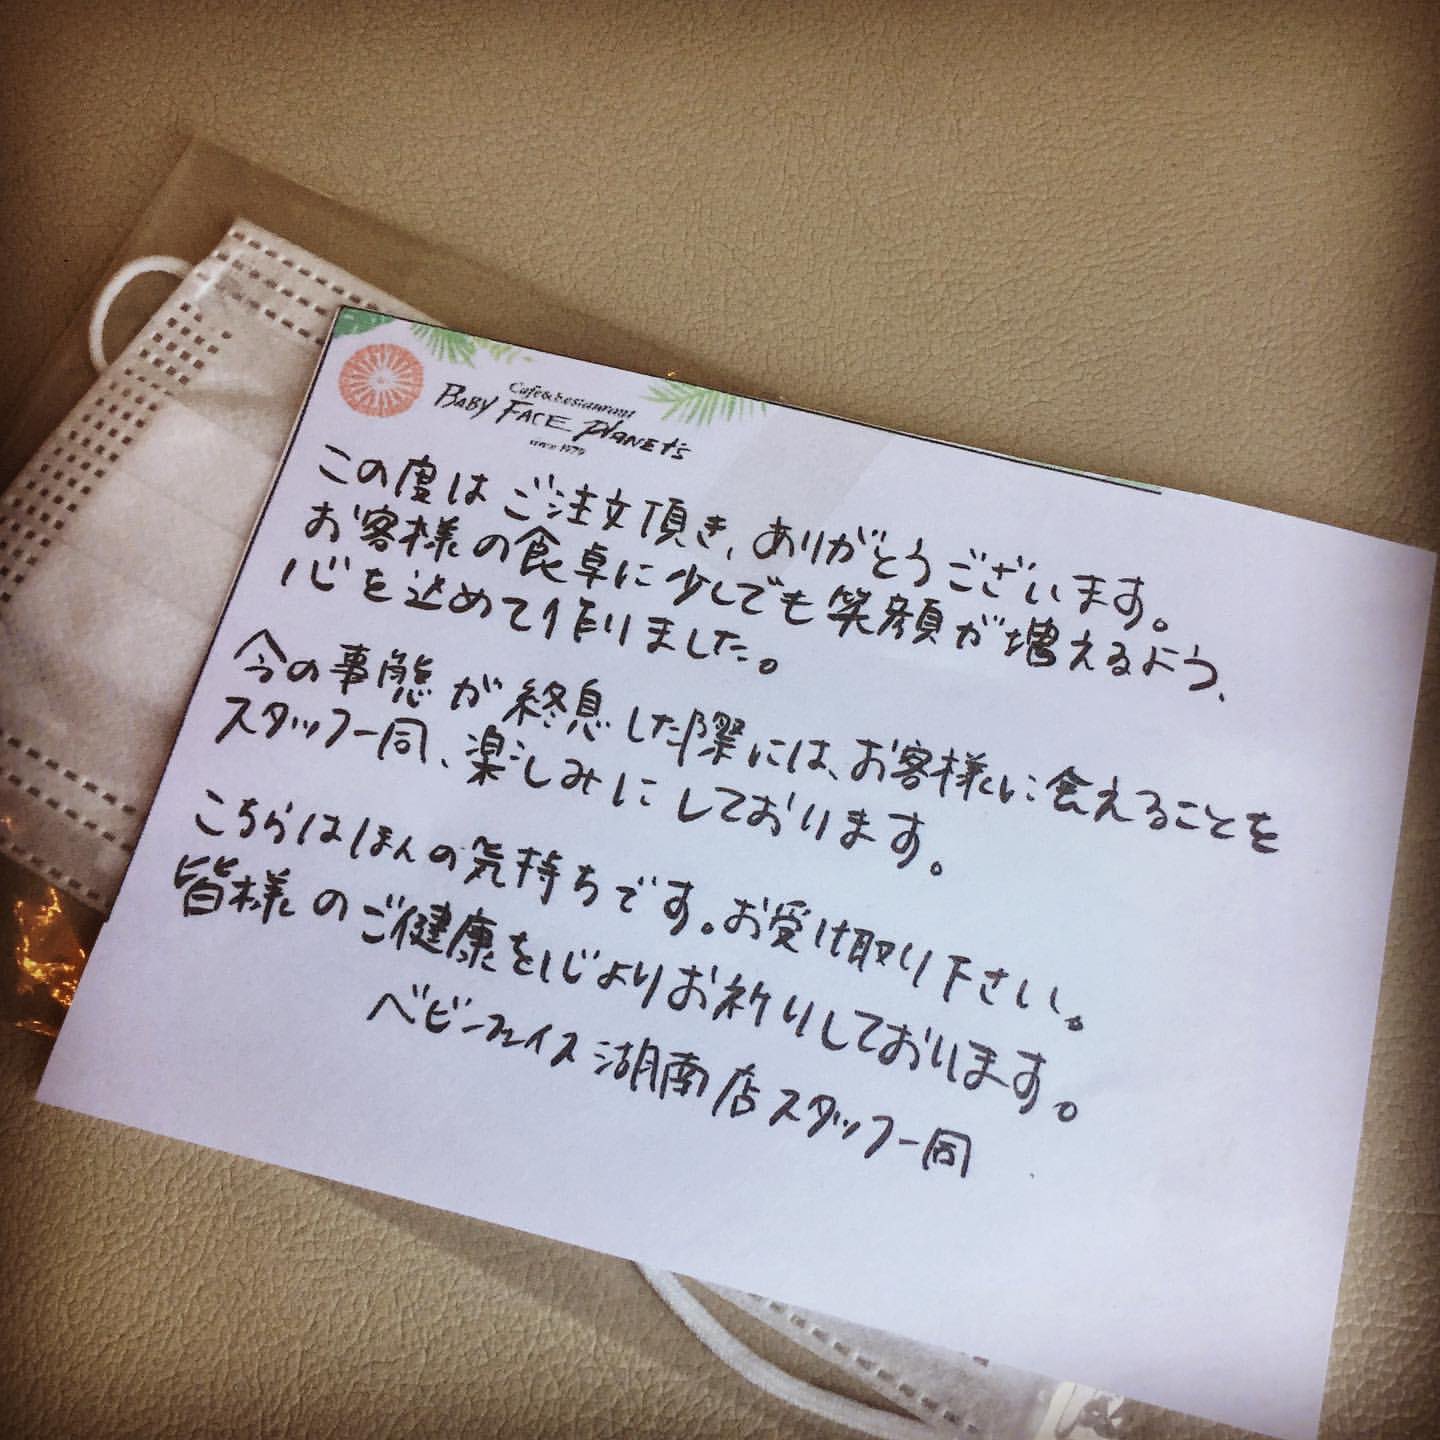 Cafe & Restaurant
BABY FACE PLANET'S
since 1979
この度はご注文頂き、ありがとうございます。
お客様の食卓に少しでも笑顔が増えるよう、
心を込めて作りました。
今の事態が終息した際には、お客様に会えることを
スタッフ一同、楽しみにしております。
こちらはほんの気持ちです。お受け取り下さい。
皆様のご健康を心よりお祈りしております。
ベビーフェイス湖南店スタッフ一同